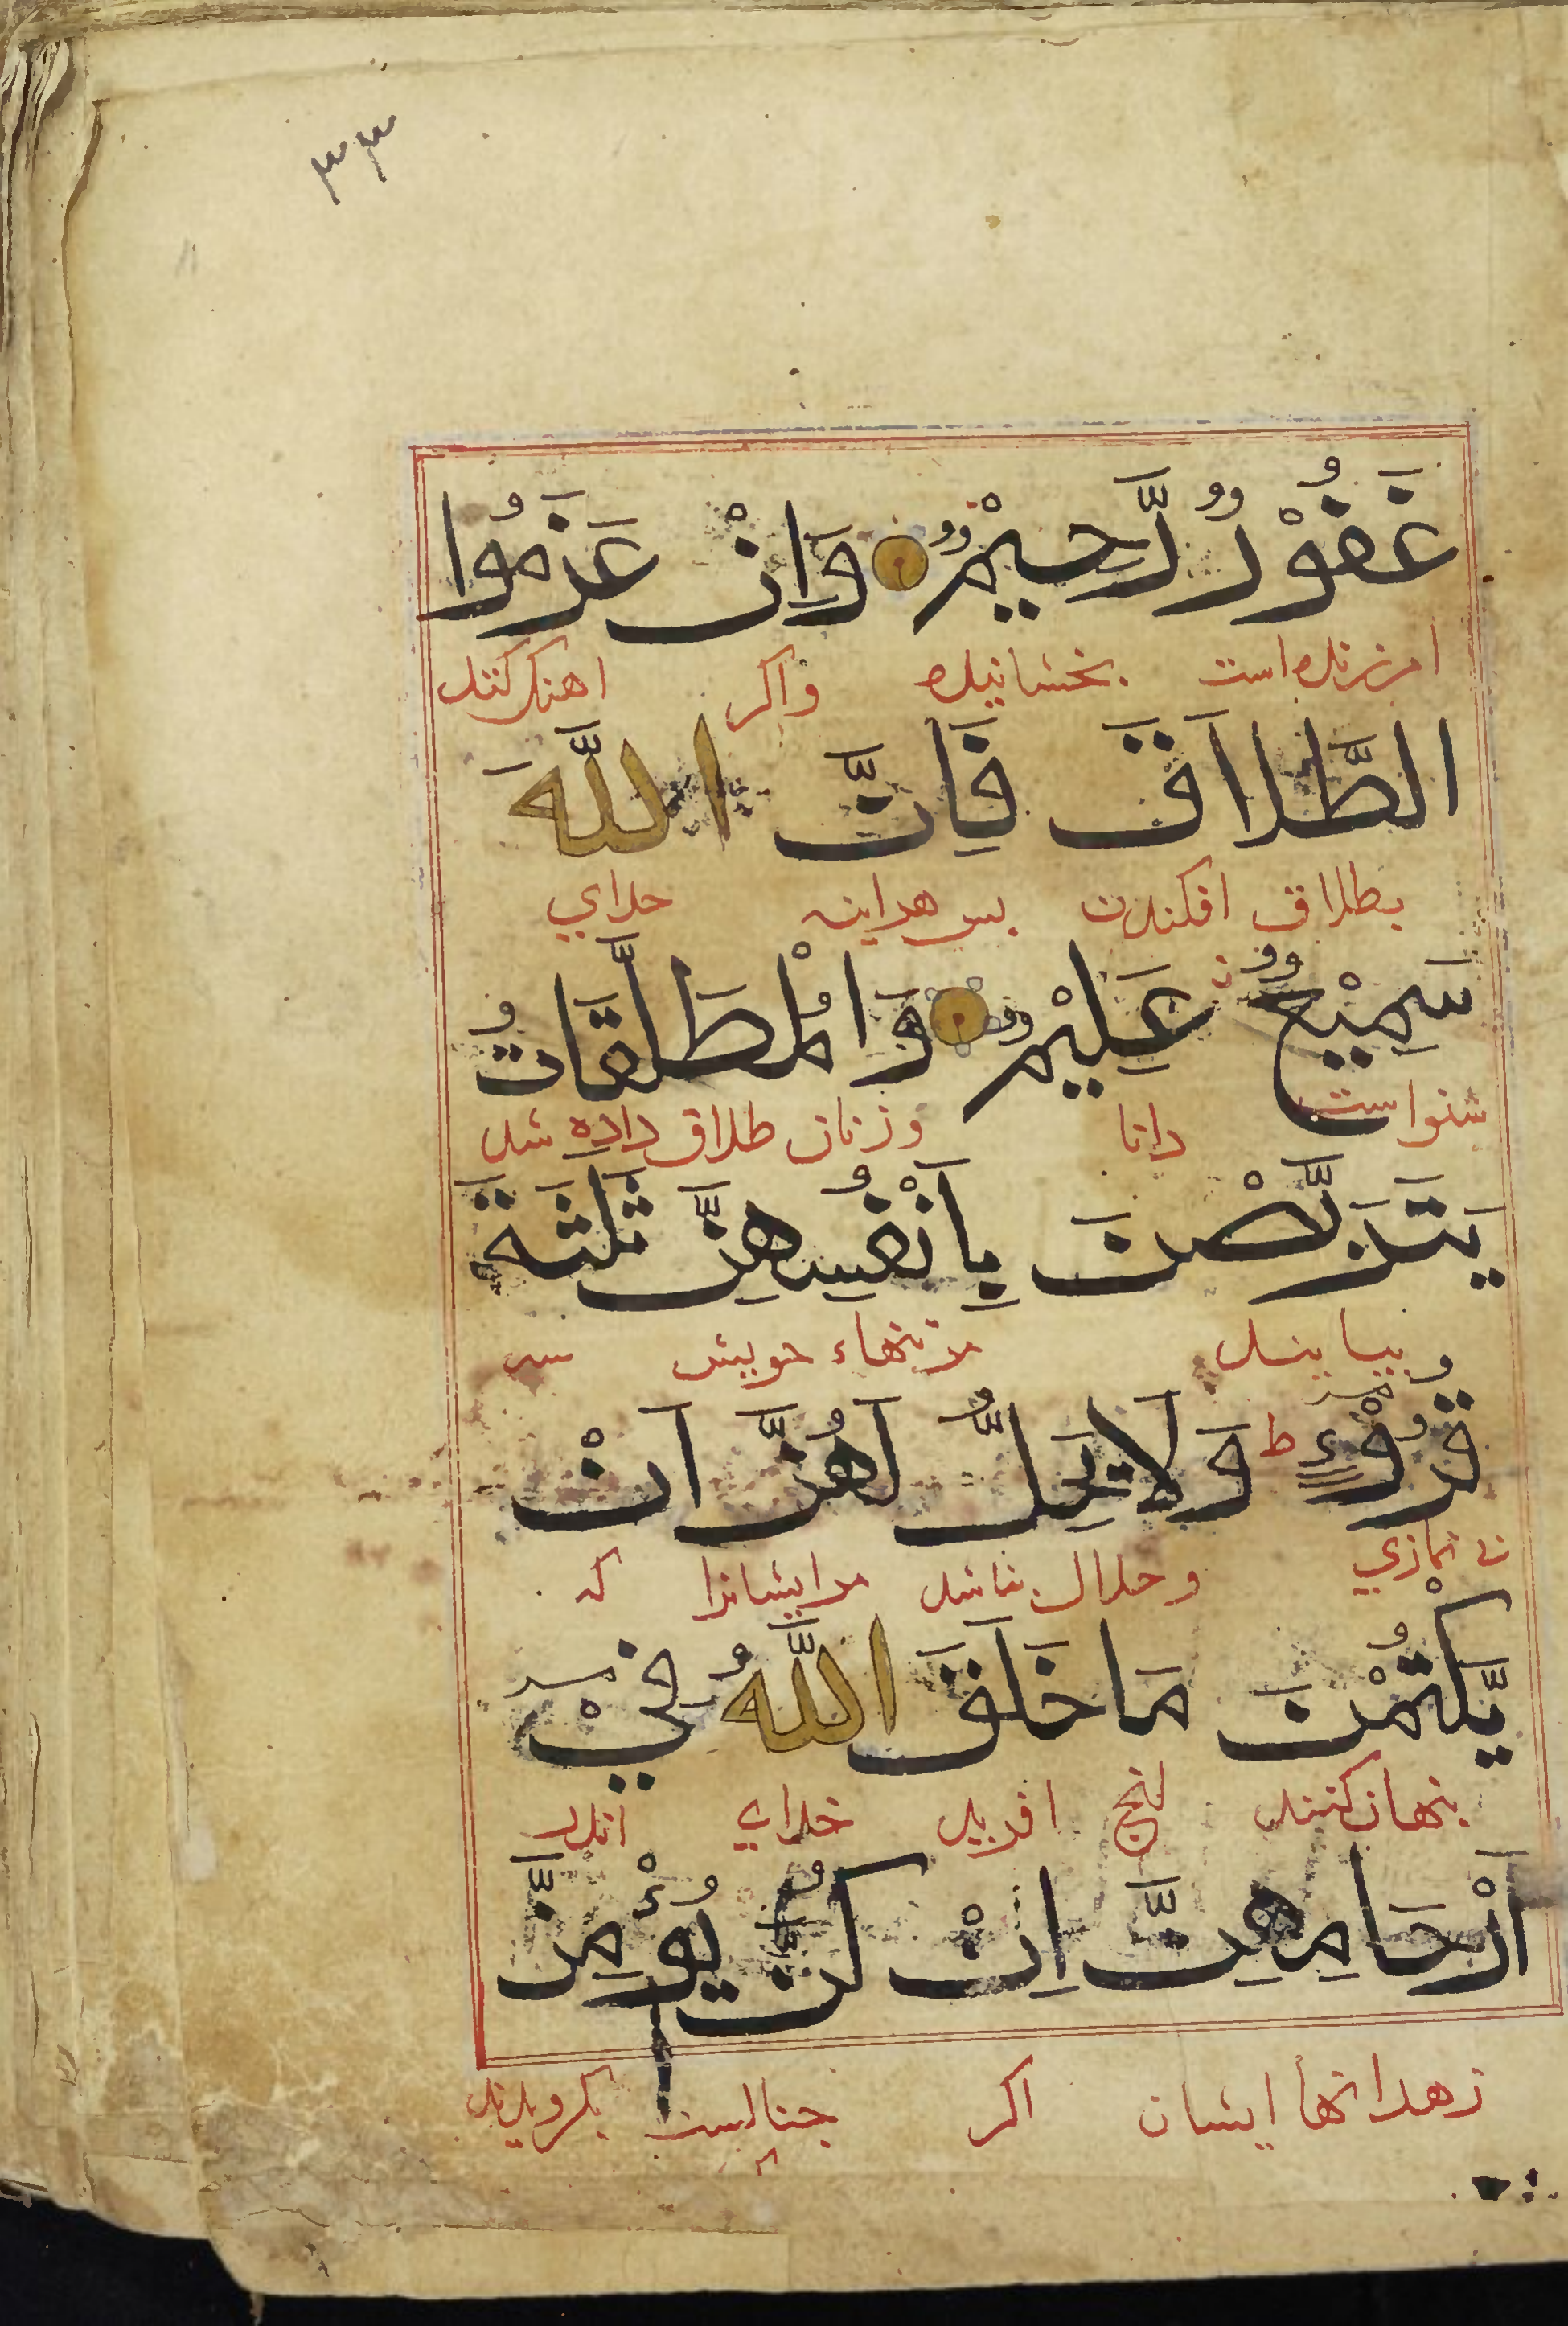 ۳۳
غَفُوْرٌ رَّحِيْمٌ وَاِنْ عَزَمُوا
امرزنده است بخشاینده واکر اهنک کنند
الطَّلَاقَ فَاِنَّ اللَّهَ
بطلاق افکندن بس هراینه خدای
سَمِيْعٌ عَلِيْمٌ وَالْمُطَلَّقَاتُ
شنواست دانا و زنان طلاق داده شده
يَتَرَبَّصْنَ بِاَنْفُسِهِنَّ ثَلٰثَةَ
بتنهاء خویش سه
قُرُوْٓءٍ ط وَلَا يَحِلُّ لَهُنَّ اَنْ
نمازی و حلال نباشد مرایشانرا که
يَّكْتُمْنَ مَا خَلَقَ اللَّهُ فِيْٓ
بنهان کنند انج افرید خدای اندر
اَرْحَامِهِنَّ اِنْ كُنَّ يُؤْمِنَّ
زهدانهاا یشان اکر جنانست بکرویدند